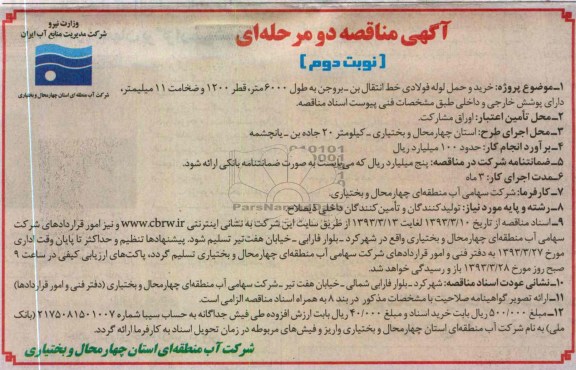 وزارت نیرو
شرکت مدیریت منابع آب ایران
شرکت آب منطقه ای استان چهارمحال و بختیاری
آگهی مناقصه دو مرحله‌ای
(نوبت دوم)
۱-موضوع پروژه: خرید و حمل لوله فولادی خط انتقال بن-بروجن به طول ۶۰۰۰ متر، قطر ۱۲۰۰ و ضخامت ۱۱ میلیمتر،
دارای پوشش خارجی و داخلی طبق مشخصات فنی پیوست اسناد مناقصه.
۲-محل تأمین اعتبار: اوراق مشارکت.
۳-محل اجرای طرح: استان چهارمحال و بختیاری- کیلومتر ۲۰ جاده بن-یانچشمه
۴-برآورد انجام کار: حدود ۱۰۰ میلیارد ریال
۵-ضمانتنامه شرکت در مناقصه: پنج میلیارد ریال که می‌بایست به صورت ضمانتنامه بانکی ارائه شود.
۶-مدت اجرای کار: ۳ ماه
۷-کارفرما: شرکت سهامی آب منطقه‌ای چهارمحال و بختیاری.
۸-رشته و پایه مورد نیاز: تولیدکنندگان و تأمین کنندگان داخلی ذیصلاح
۹-اسناد مناقصه از تاریخ ۱۳۹۳/۳/۱۰ لغایت ۱۳۹۳/۳/۱۳ از طریق سایت این شرکت به نشانی اینترنتی www.cbrw.ir و نیز امور قراردادهای شرکت
سهامی آب منطقه‌ای چهارمحال و بختیاری واقع در شهرکرد-بلوار فارابی-خیابان هفت‌تیر تسلیم شود. پیشنهادها تنظیم و حداکثر تا پایان وقت اداری
مورخ ۱۳۹۳/۳/۲۷ به دفتر فنی و امور قراردادهای شرکت سهامی آب منطقه‌ای چهارمحال و بختیاری تسلیم گردد، پاکت‌های ارزیابی کیفی در ساعت ۹
صبح روز مورخ ۱۳۹۳/۳/۲۸ باز و رسیدگی خواهد شد.
۱۰-نشانی عودت اسناد مناقصه: شهرکرد-بلوار فارابی شمالی-خیابان هفت تیر-شرکت سهامی آب منطقه‌ای چهارمحال و بختیاری (دفتر فنی و امور قراردادها)
۱۱-ارائه تصویر گواهینامه صلاحیت با مشخصات مذکور در بند ۸ به همراه اسناد مناقصه الزامی است.
۱۲-مبلغ ۵۰۰/۰۰۰ ریال بابت خرید اسناد و مبلغ ۴۰/۰۰۰ ریال بابت ارزش افزوده طی فیش جداگانه به حساب سیبا شماره ۲۱۷۵۰۸۱۵۰۱۰۰۷ (بانک
ملی) به نام شرکت آب منطقه‌ای استان چهارمحال و بختیاری واریز و فیش‌های مربوطه در زمان تحویل اسناد به کارفرما ارائه گردد.
شرکت آب منطقه‌ای استان چهارمحال و بختیاری